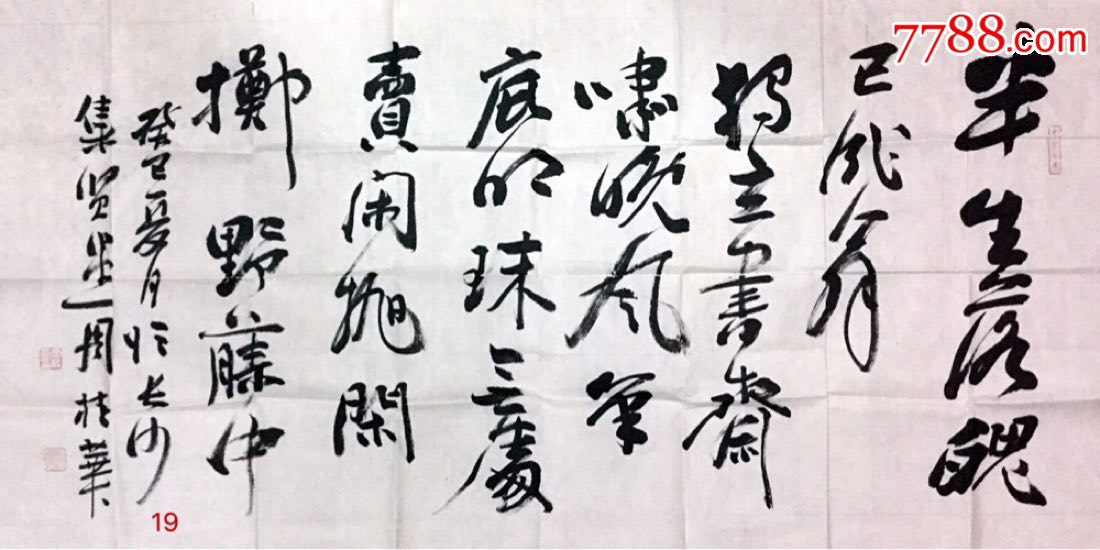 7788.com
半生落魄
已成翁
独立書齋
嘯晚风笔
底明珠无處
賣闲抛閑
擲野藤中
癸巳夏月於长沙
集贤周桂華
19